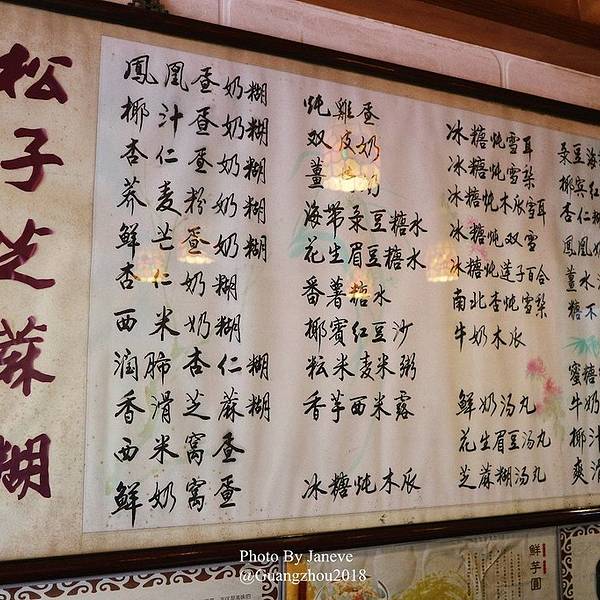 松子芝蔴糊
鳳凰蛋奶糊
椰汁蛋奶糊
杏仁蛋奶糊
荞麦粉奶糊
鲜芒蛋奶糊
杏仁奶糊
西米奶糊
润肺杏仁糊
香滑芝蔴糊
西米窝蛋
鲜奶窝蛋
炖雞蛋
双皮奶
薑
海带菉豆糖水
花生眉豆糖水
番薯糖水
椰賓红豆沙
粘米麦米粥
香芋西米露
冰糖炖木瓜
冰糖炖雪耳
冰糖炖雪梨
冰糖炖木瓜雪耳
冰糖炖双雪
冰糖炖莲子百合
南北杏炖雪梨
牛奶木瓜
鲜奶汤丸
花生眉豆汤丸
芝蔴糊汤丸
菉豆海
椰宾红
杏仁
鳳凰奶
薑水
糖不
蜜糖
牛奶
椰汁
爽滑
鮮芋圓
Photo By Janeve
@Guangzhou2018